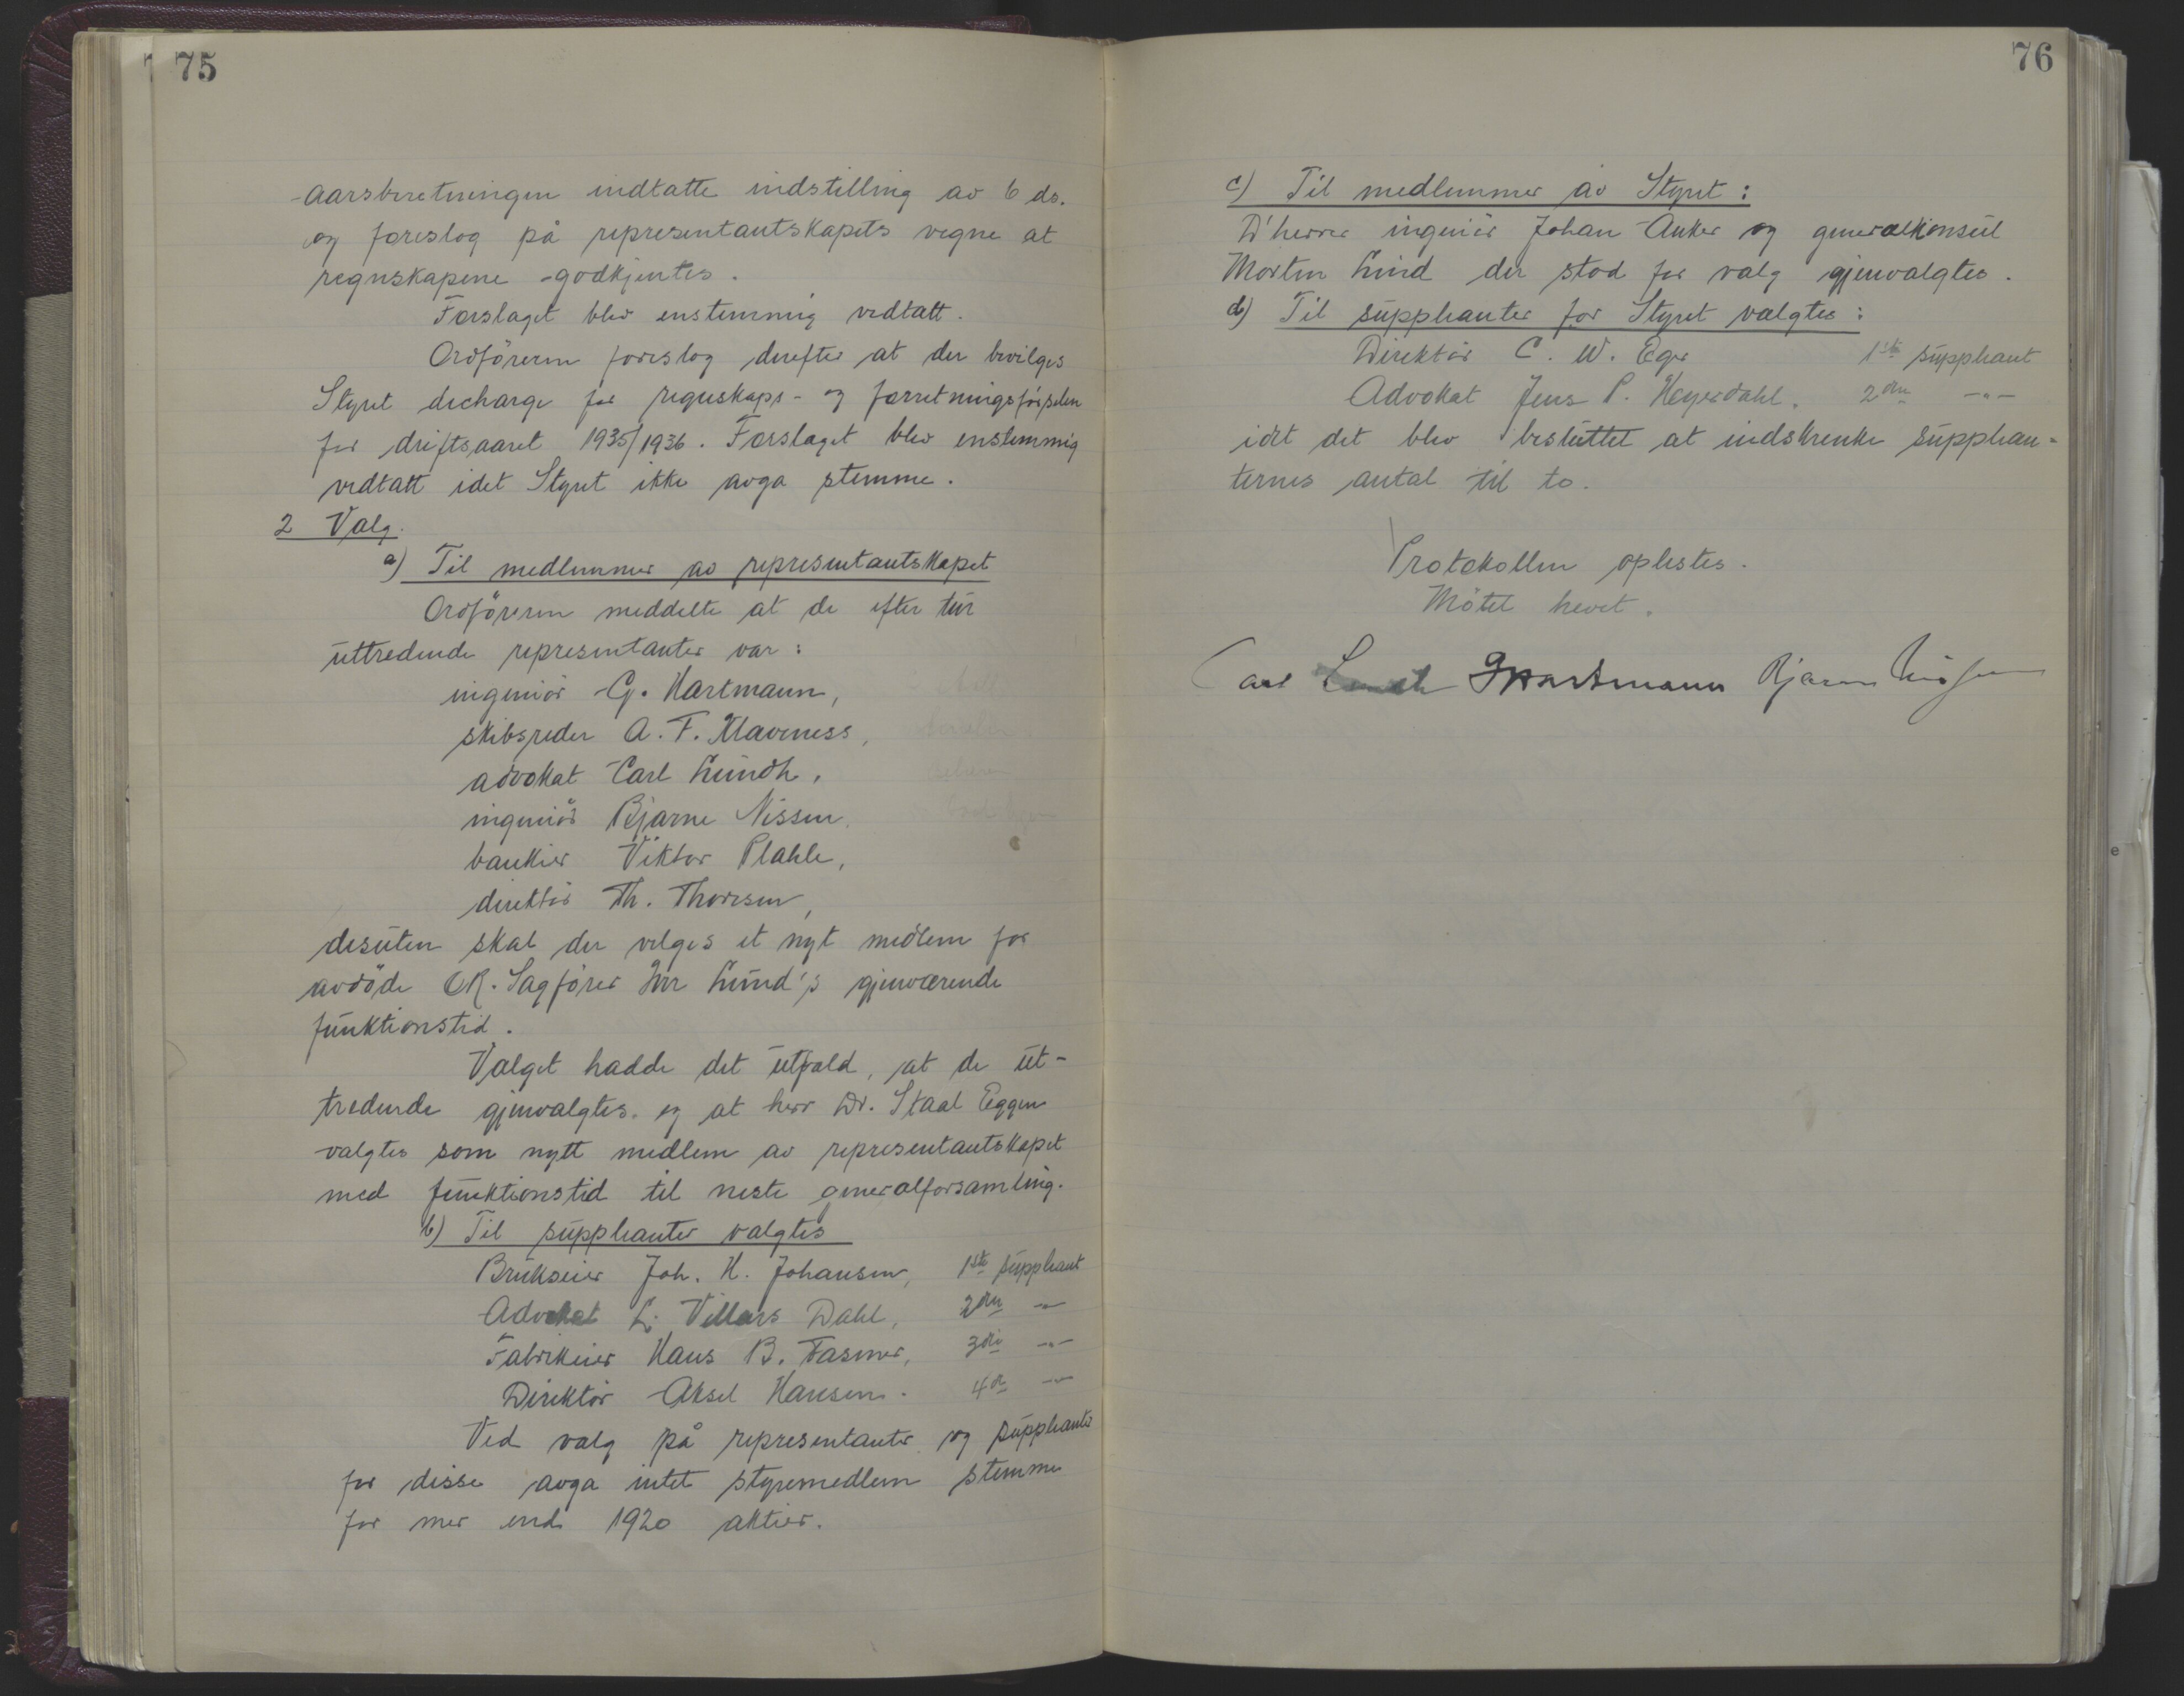 75
aarsberetningen indtatte indstilling av 6 ds.
og foreslog på representantskapets vegne at
regnskapene godkjentes.
Forslaget blev enstemmig vedtatt.
Ordføreren foreslog derefter at der bevilges
Styret decharge for regnskaps- og forretningsførselen
for driftsaaret 1935/1936. Forslaget blev enstemmig
vedtatt idet Styret ikke avga stemme.
2 Valg.
a) Til medlemmer av representantskapet
Ordføreren meddelte at de efter tur
uttredende representanter var:
ingeniör G. Hartmann,
skibsreder A. F. Klaveness,
advokat Carl Lundh,
ingeniör Bjarne Nissen,
bankier Viktor Plahte,
direktör Th. Thoresen,
desuten skal der velges et nyt medlem for
avdöde OR. Sagförer Lund's gjenværende
funktionstid.
Valget hadde det utfald, at de ut-
tredende gjenvalgtes og at herr Dr. Staal Eggen
valgtes som nytt medlem av representantskapet
med funktionstid til neste generalforsamling.
b) Til suppleanter valgtes
Brukseier Joh. H. Johansen, 1ste suppleant
Advokat L. Villars Dahl, 2den -"-
Fabrikeier Hans B. Fasmer, 3die -"-
Direktör Aksel Hansen. 4de -"-
Ved valg på representanter og suppleanter
for disse avga intet styremedlem stemme
for mer end 1920 aktier.
76
c) Til medlemmer av Styret:
D'herrer ingeniör Johan Anker og generalkonsul
Morten Lind der stod for valg gjenvalgtes.
d) Til suppleanter for Styret valgtes:
Direktör C. W. Eger 1ste suppleant
Advokat Jens P. Heyerdahl. 2den -"-
idet det blev besluttet at indskrenke supplean-
ternes antal til to.
Protokollen oplestes.
Mötet hevet.
Carl Lundh GHartmann Bjarne Nissen